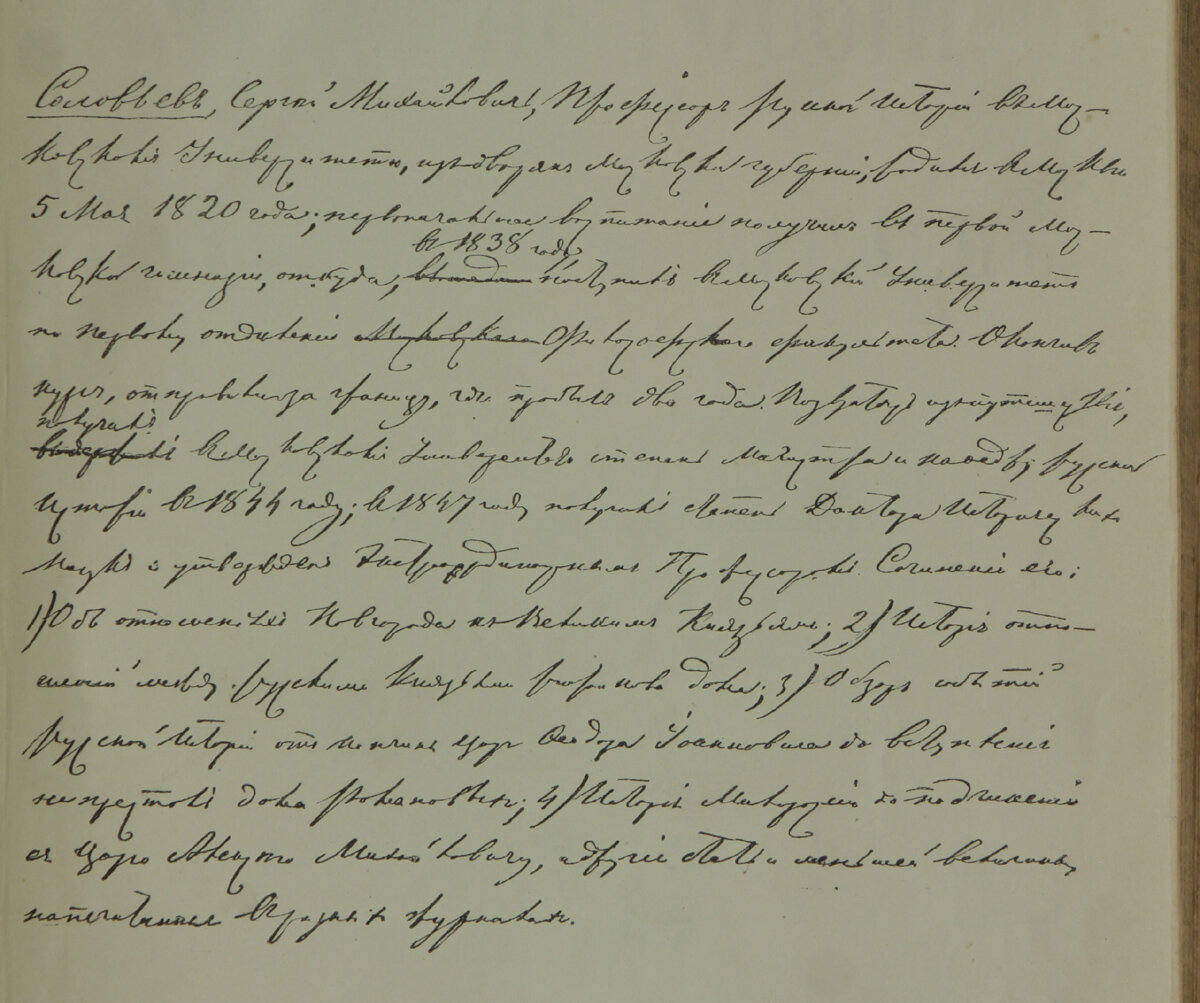 Соловьевъ, Сергѣй Михайловичъ, Профессоръ русской Исторіи въ Мос-
ковскомъ Университетѣ, изъ дворянъ Московской губерніи, родился въ Москвѣ
5 Мая 1820 года; первоначальное воспитаніе получилъ въ первой Мос-
въ 1838 году
ковской гимназіи, откуда, поступилъ въ Московскій Университетъ
по первому отдѣленію Московскаго Философскаго факультета. Окончивъ
курсъ, отправился за границу, гдѣ пробылъ два года. Возвратясь изъ путешествія,
получилъ
въ Московскомъ Университетѣ степень Магистра и каѳедру русской
Исторіи въ 1844 году; въ 1847 году получилъ степень Доктора Историческихъ
наукъ и утвержденъ Экстраординарнымъ Профессоромъ. Сочиненія его:
1) Объ отношеніяхъ Новгорода къ Великимъ Князьямъ; 2) Исторія отно-
шеній между русскими Князьями Рюрикова дома; 3) Обзоръ событій
русской Исторіи отъ кончины Царя Ѳеодора Іоанновича до вступленія
на престолъ дома Романовыхъ; 4) Исторія Малороссіи до подчиненія
ея Царю Алексѣю Михайловичу, и другія статьи меньшей величины,
напечатанныя въ разныхъ журналахъ.